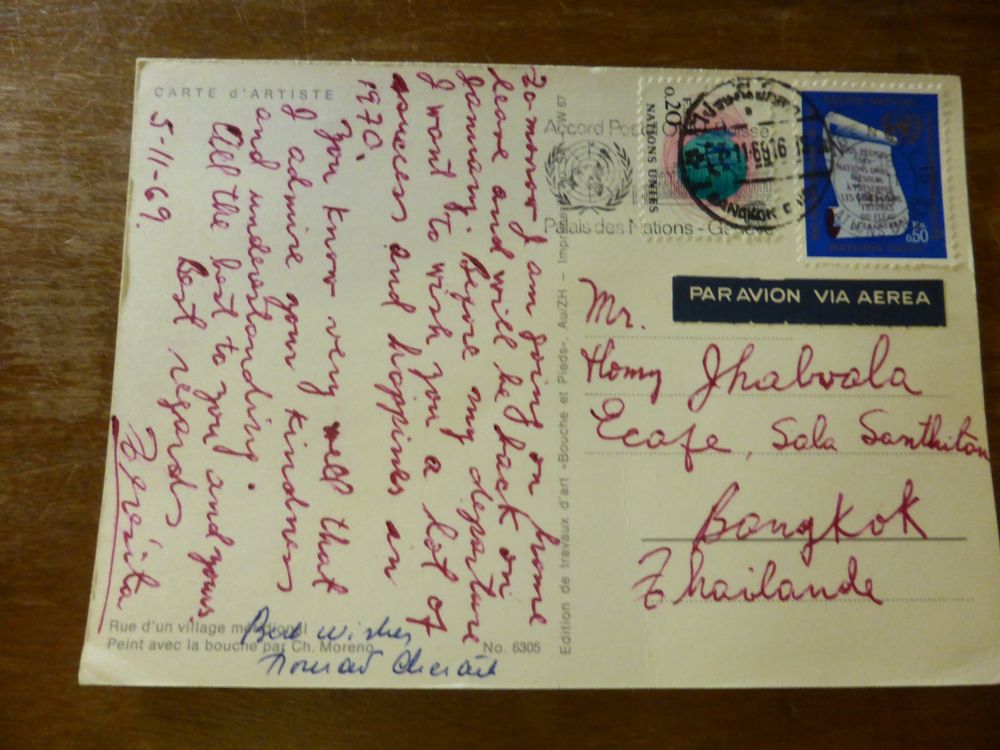 CARTE d'ARTISTE
5-11-69.
To morrow I am going on home
leave and will be back on
January. Before my departure
I want to wish you a lot of
success and happines in
1970.
You know very well that
I admire your kindness
and understanding.
All the best to you and yours.
Best regards
Rue d'un village méridional
Peint avec la bouche par Ch. Moreno
No. 6305
Best wishes
Edition de travaux d'art «Bouche et Pieds», Au/ZH – Imprimé
W 67
Accord Poste Suisse
Palais des Nations - Genève
NATIONS UNIES
0.20
BANGKOK
UNITED NATIONS
NATIONS UNIES
F.s.
0.50
PAR AVION VIA AEREA
Mr.
Homy Jhabvala
Ecafe, Sala Santhitan
Bangkok
Thailande